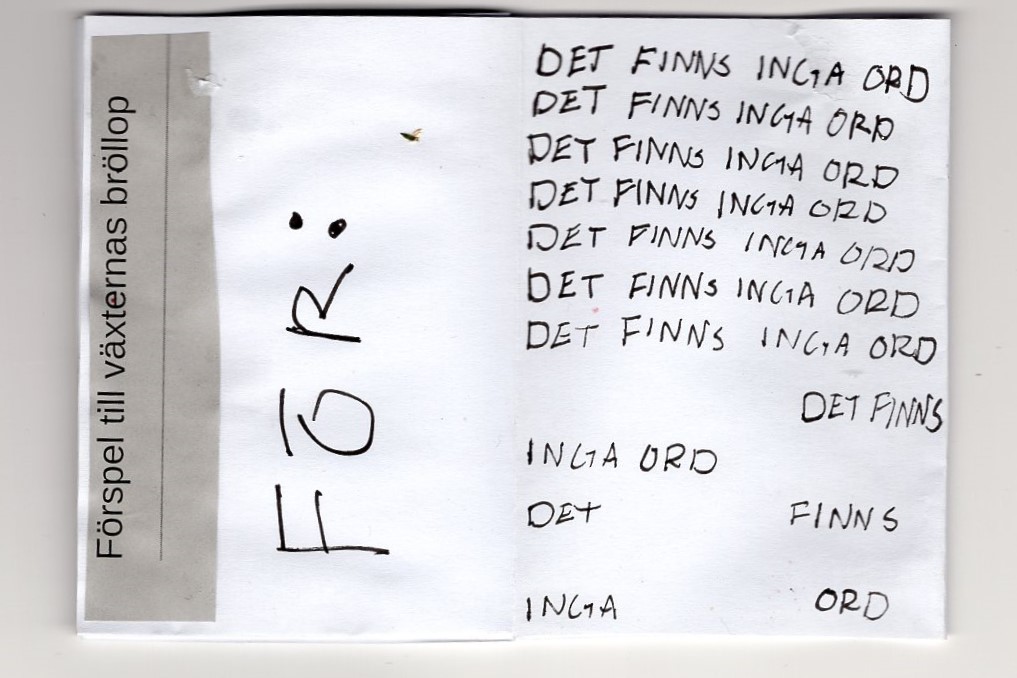 Förspel till växternas bröllop
FÖR:
DET FINNS INGA ORD
DET FINNS INGA ORD
DET FINNS INGA ORD
DET FINNS INGA ORD
DET FINNS INGA ORD
DET FINNS INGA ORD
DET FINNS INGA ORD
DET FINNS
INGA ORD
DET FINNS
INGA ORD